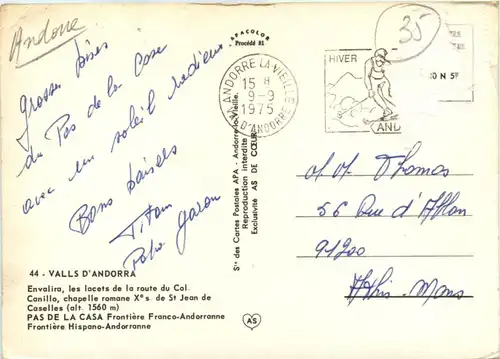 Andorre
35
APACOLOR
Procédé 81
HIVER
ANDORRE-LA-VIEILLE
15 H
9-9
1975
VL D'ANDORRE
AND
Grosses bises
du Pas de la Case
avec un soleil radieux
Bons baisers
M. M. Thomas
56 Rue d'Ablon
91200
Athis-Mons
44 - VALLS D'ANDORRA
Envalira, les lacets de la route du Col.
Canillo, chapelle romane X°s de St Jean de
Caselles (alt. 1560 m)
PAS DE LA CASA Frontière Franco-Andorranne
Frontière Hispano-Andorranne
Sté des Cartes Postales APA - Andorre-la-Vieille.
Reproduction interdite
Exclusivité AS DE CŒUR
AS